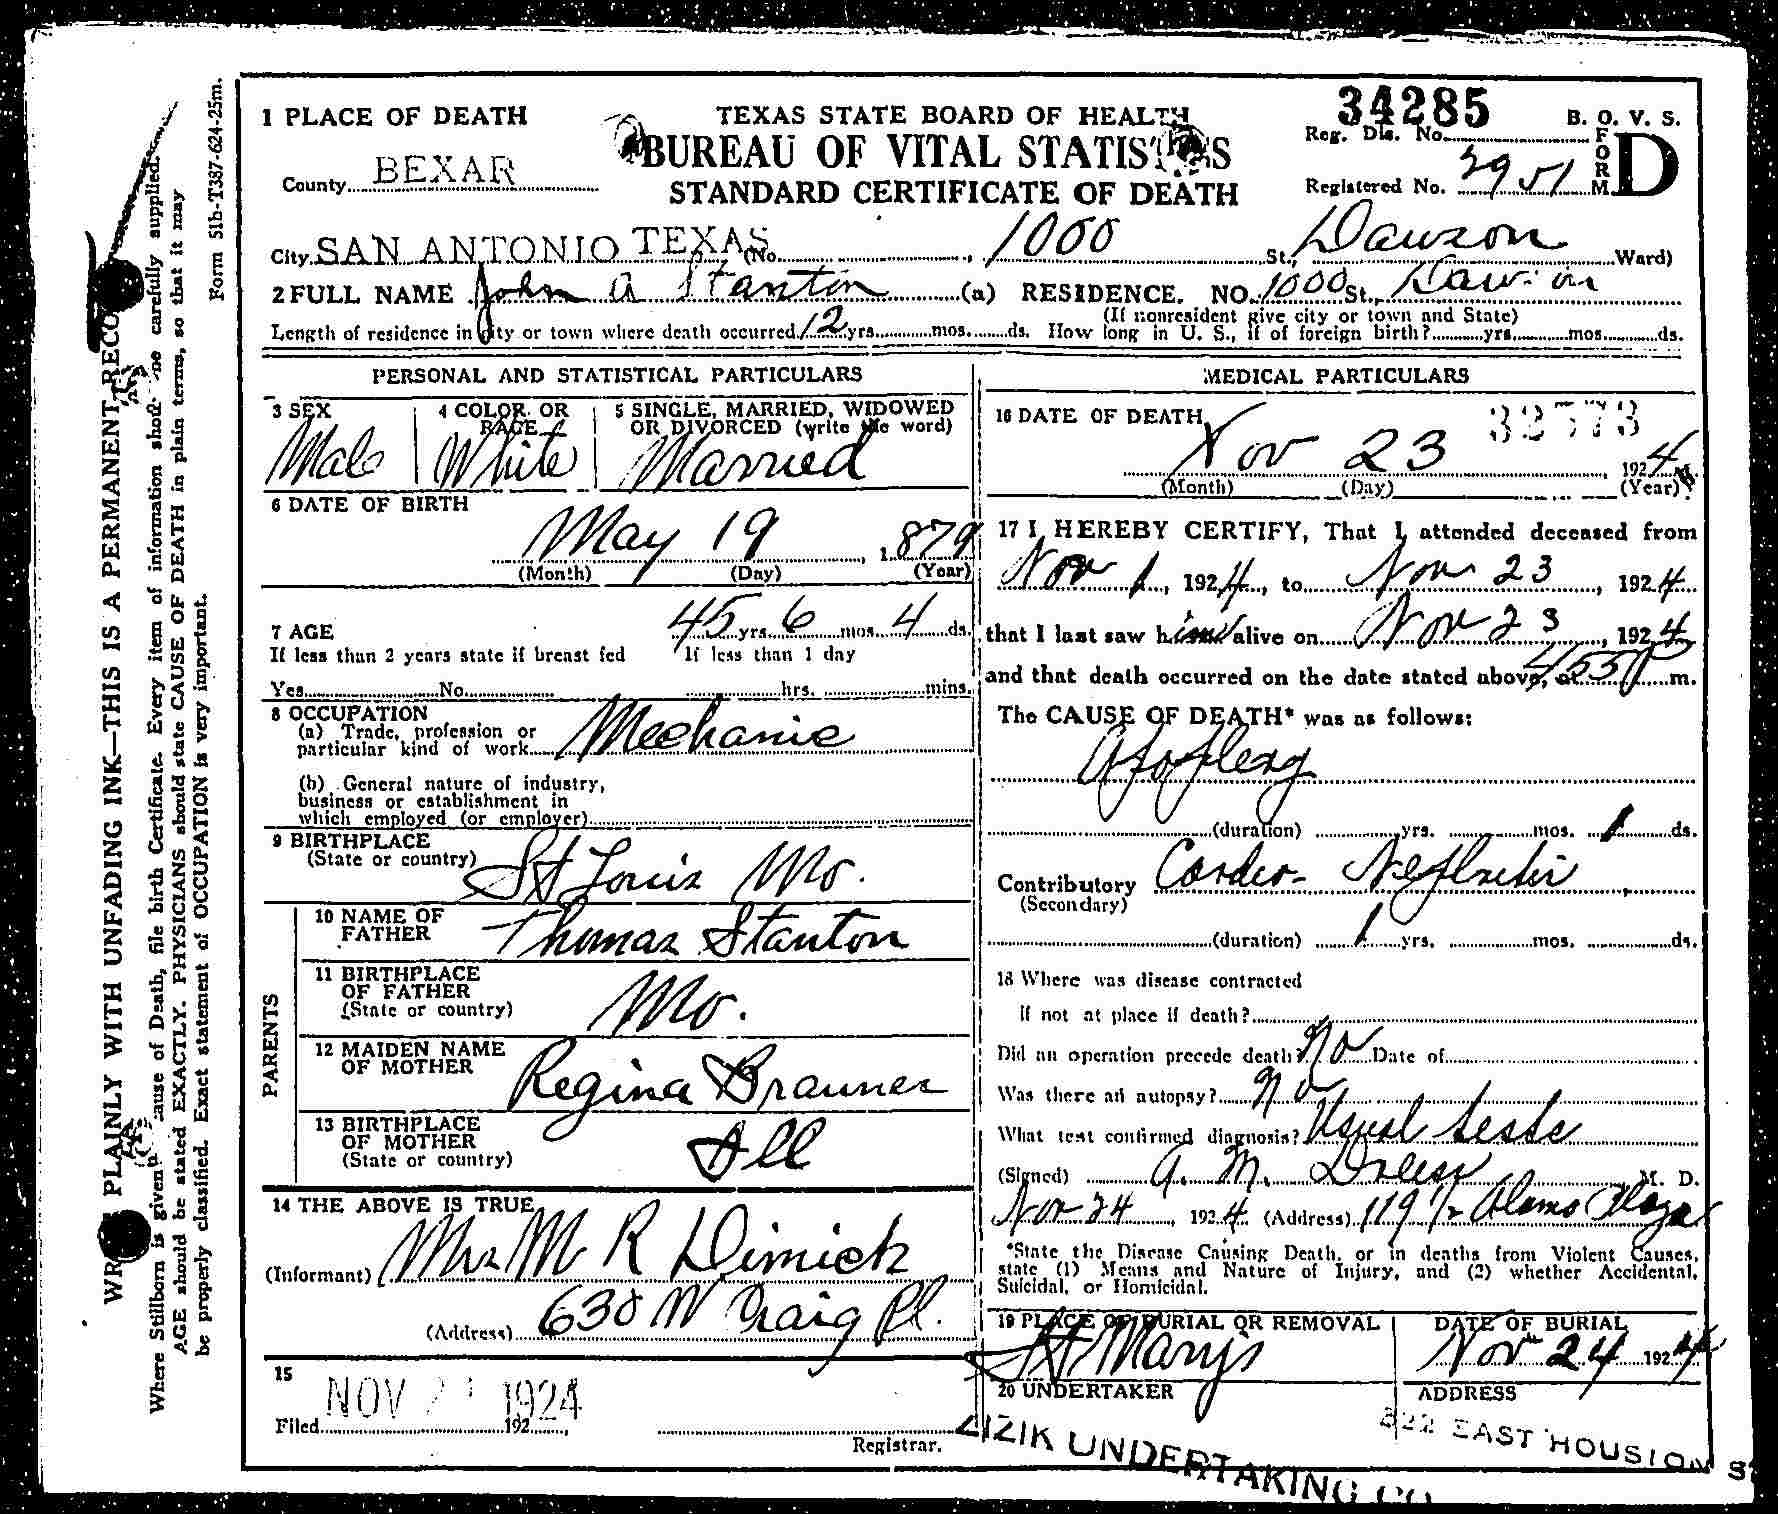 34285
1 PLACE OF DEATH
TEXAS STATE BOARD OF HEALTH
Reg. Dis. No.
B. O. V. S.
County BEXAR
BUREAU OF VITAL STATISTICS
Registered No. 3951
FORM D
STANDARD CERTIFICATE OF DEATH
City SAN ANTONIO TEXAS (No. , 1000 St., Dawson Ward)
2 FULL NAME John A Stanton (a) RESIDENCE. NO. 1000 St., Dawson
(If nonresident give city or town and State)
Length of residence in city or town where death occurred 12 yrs. mos. ds. How long in U. S., if of foreign birth? yrs. mos. ds.
PERSONAL AND STATISTICAL PARTICULARS
3 SEX
Male
4 COLOR OR RACE
White
5 SINGLE, MARRIED, WIDOWED
OR DIVORCED (write the word)
Married
6 DATE OF BIRTH
May 19, 1879
(Month) (Day) (Year)
7 AGE 45 yrs. 6 mos. 4 ds.
If less than 2 years state if breast fed If less than 1 day
Yes No hrs. mins.
8 OCCUPATION
(a) Trade, profession or
particular kind of work Mechanic
(b) General nature of industry,
business or establishment in
which employed (or employer)
9 BIRTHPLACE
(State or country) St Louis Mo.
PARENTS
10 NAME OF
FATHER Thomas Stanton
11 BIRTHPLACE
OF FATHER
(State or country) Mo.
12 MAIDEN NAME
OF MOTHER Regina Brauner
13 BIRTHPLACE
OF MOTHER
(State or country) Ill
14 THE ABOVE IS TRUE
(Informant) Mrs M R Dimick
(Address) 630 W Craig Pl.
15
Filed NOV 1924 192 ,
Registrar.
MEDICAL PARTICULARS
16 DATE OF DEATH 32573
Nov 23 1924
(Month) (Day) (Year)
17 I HEREBY CERTIFY, That I attended deceased from
Nov 1, 1924, to Nov 23, 1924
that I last saw him alive on Nov 23, 1924
and that death occurred on the date stated above, at 455 P m.
The CAUSE OF DEATH* was as follows:
Apoplexy
(duration) yrs. mos. 1 ds.
Contributory Cardio-Nephritis
(Secondary)
(duration) 1 yrs. mos. ds.
18 Where was disease contracted
If not at place if death?
Did an operation precede death? No Date of
Was there an autopsy? No
What test confirmed diagnosis? Usual tests
(Signed) A. M. M. D.
Nov 24, 1924 (Address) 119 1/2 Alamo Plaza
*State the Disease Causing Death, or in deaths from Violent Causes,
state (1) Means and Nature of Injury, and (2) whether Accidental,
Suicidal, or Homicidal.
19 PLACE OF BURIAL OR REMOVAL
St Mary's
DATE OF BURIAL
Nov 24 1924
20 UNDERTAKER
ZIZIK UNDERTAKING CO
ADDRESS
822 EAST HOUSTON ST
Form 51b-T387-624-25m.
WRITE PLAINLY WITH UNFADING INK—THIS IS A PERMANENT RECORD
Where Stillborn is given cause of Death, file birth Certificate. Every item of information should be carefully supplied.
AGE should be stated EXACTLY. PHYSICIANS should state CAUSE OF DEATH in plain terms, so that it may
be properly classified. Exact statement of OCCUPATION is very important.